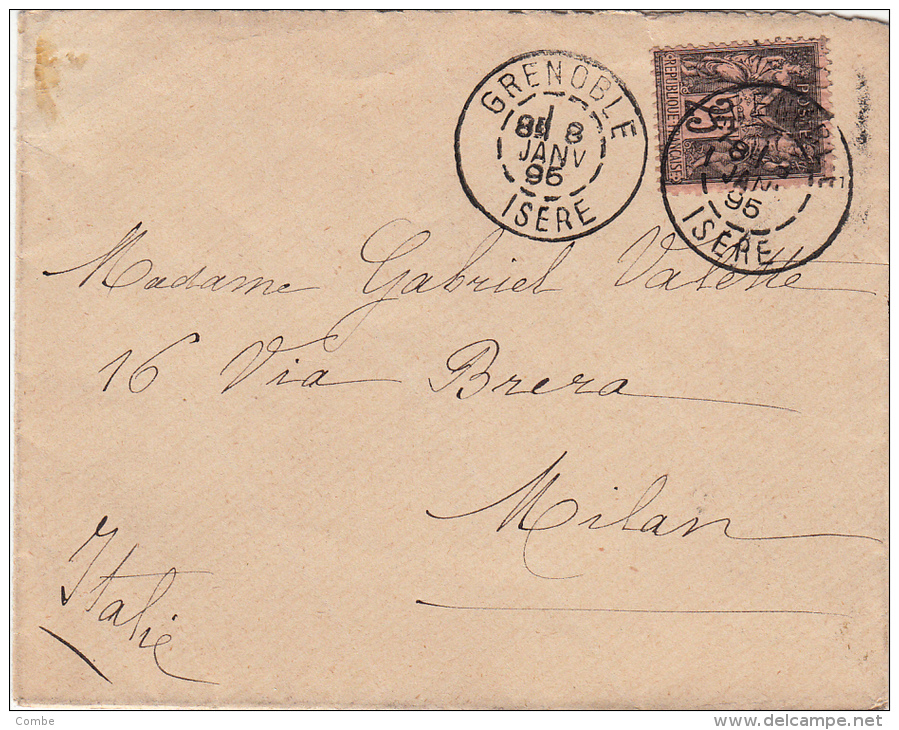 GRENOBLE
8 8
JANV
95
ISÈRE
REPUBLIQUE FRANÇAISE
25
POSTE
JAN
95
ISÈRE
Madame Gabriel Valette
16 Via Brera
Milan
Italie
Combe
www.delcampe.net